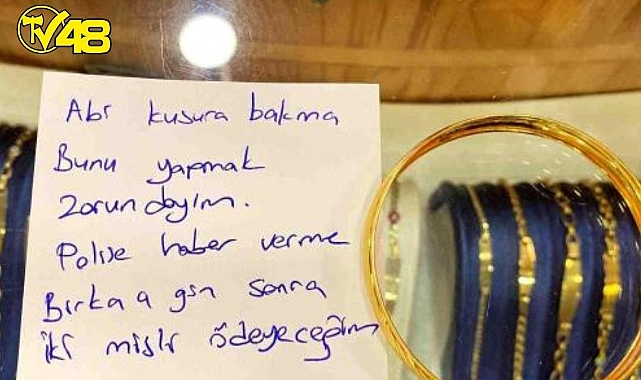 TV48
Abi kusura bakma
Bunu yapmak
zorundayım.
Polise haber verme
Birkaç gün sonra
iki misli ödeyeceğim